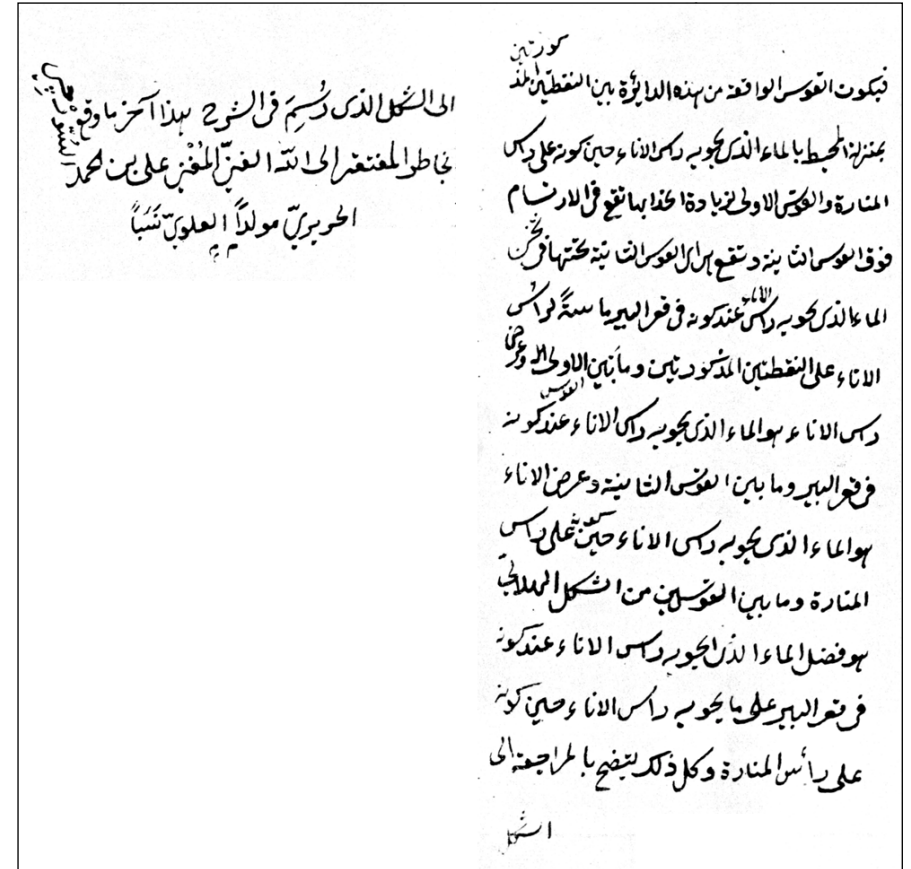 فيكون القوس الواقعة من هذه الدايرة بين النقطتين المذ
كورتين
بمنزلة المحيط بالماء الذى يحويه راس الاناء حين كونه على راس
المنارة والقوس الاولى لزيادة انحدابها تقع فى الارتسام
فوق القوس الثانية وتقع هذا القوس الثانية تحتها فيكون
الماء الذى يحويه راس الاناء عند كونه فى قعر البير مماسة لراس
الاناء على النقطتين المذكورتين وما بين القوس الاولى وعرض
راس الاناء هو الماء الذى يحويه راس الاناء عند كونه
فى قعر البير وما بين القوس الثانية وعرض الاناء
هو الماء الذى يحويه راس الاناء حين كونه على راس
المنارة وما بين القوسين من الشكل الهلالى
هو فضل الماء الذى يحويه راس الاناء عند كونه
فى قعر البير على ما يحويه راس الاناء حين كونه
على رأس المنارة وكل ذلك يتضح بالمراجعة الى
الشكل
الى الشكل الذى رُسِمَ فى الشرح هذا آخر ما وقع
بخاطر المفتقر الى الله الغنىّ المُغْنى على بن محمد
الحريرىّ مولداً العلوىّ نَسَباً